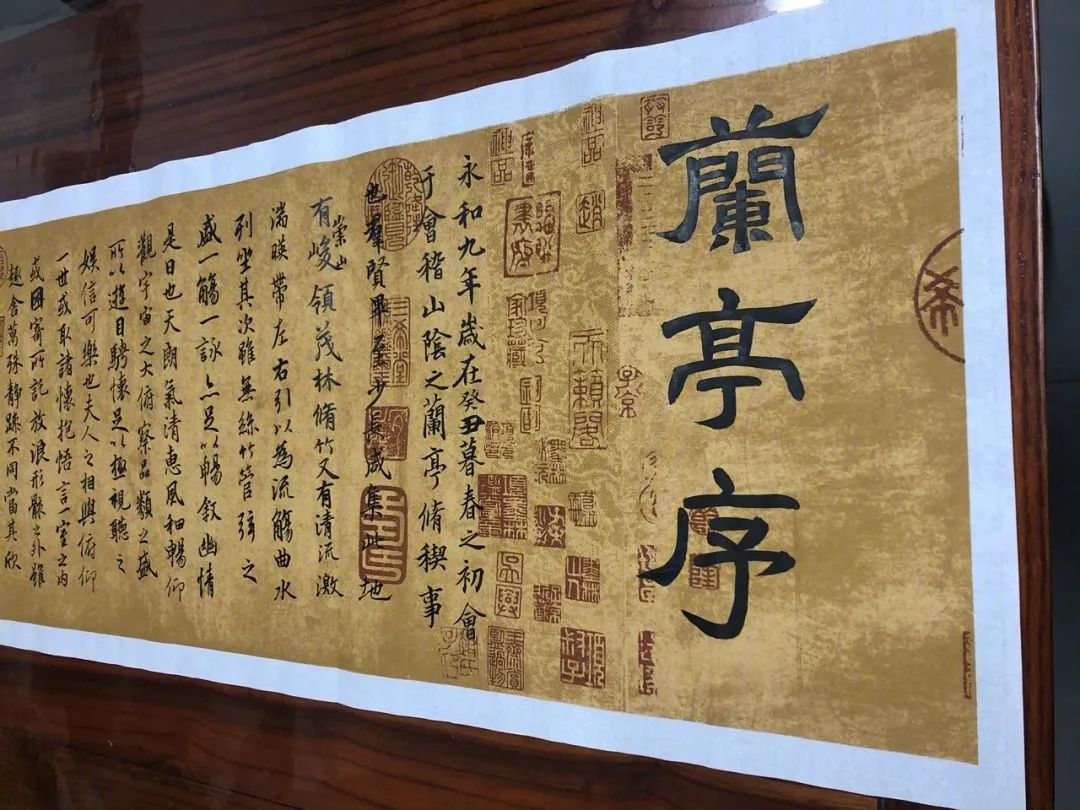 蘭亭序
神品
神品
永和九年歲在癸丑暮春之初會
于會稽山陰之蘭亭脩稧事
也羣賢畢至少長咸集此地
有崇山峻領茂林脩竹又有清流激
湍暎帶左右引以為流觴曲水
列坐其次雖無絲竹管弦之
盛一觴一詠亦足以暢敘幽情
是日也天朗氣清惠風和暢仰
觀宇宙之大俯察品類之盛
所以遊目騁懷足以極視聽之
娛信可樂也夫人之相與俯仰
一世或取諸懷抱悟言一室之內
或因寄所託放浪形骸之外雖
趣舍萬殊靜躁不同當其欣